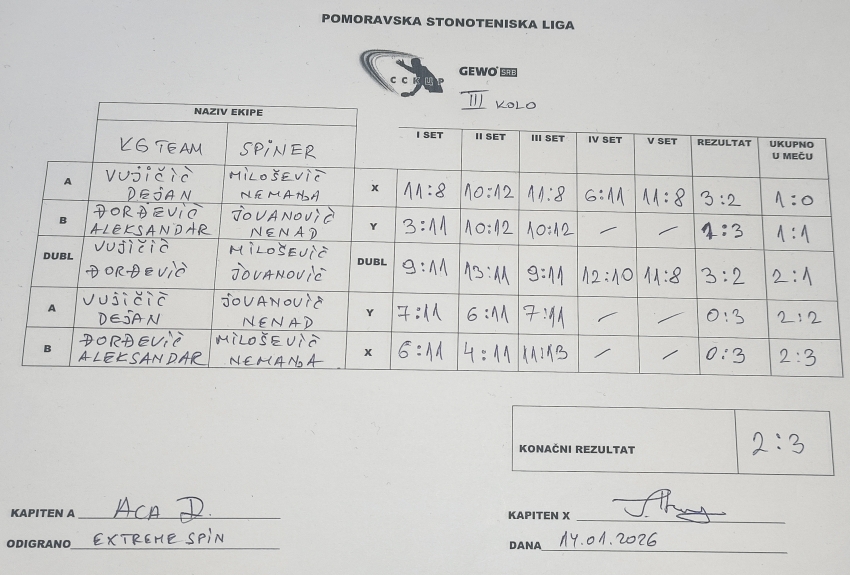 POMORAVSKA STONOTENISKA LIGA
ССКЦР GEWO SRB
III KOLO
NAZIV EKIPE
KG TEAM SPINER I SET II SET III SET IV SET V SET REZULTAT UKUPNO U MEČU
A VUJIČIĆ DEJAN MILOŠEVIĆ NEMANJA X 11:8 10:12 11:8 6:11 11:8 3:2 1:0
B ĐORĐEVIĆ ALEKSANDAR JOVANOVIĆ NENAD Y 3:11 10:12 10:12 / / :3 1:1
DUBL VUJIČIĆ ĐORĐEVIĆ MILOŠEVIĆ JOVANOVIĆ DUBL 9:11 13:11 9:11 12:10 11:8 3:2 2:1
A VUJIČIĆ DEJAN JOVANOVIĆ NENAD Y 7:11 6:11 7:11 / / 0:3 2:2
B ĐORĐEVIĆ ALEKSANDAR MILOŠEVIĆ NEMANJA X 6:11 4:11 11:13 / / 0:3 2:3
KONAČNI REZULTAT 2:3
KAPITEN A ACA D. KAPITEN X
ODIGRANO EXTREME SPIN DANA 14.01.2026